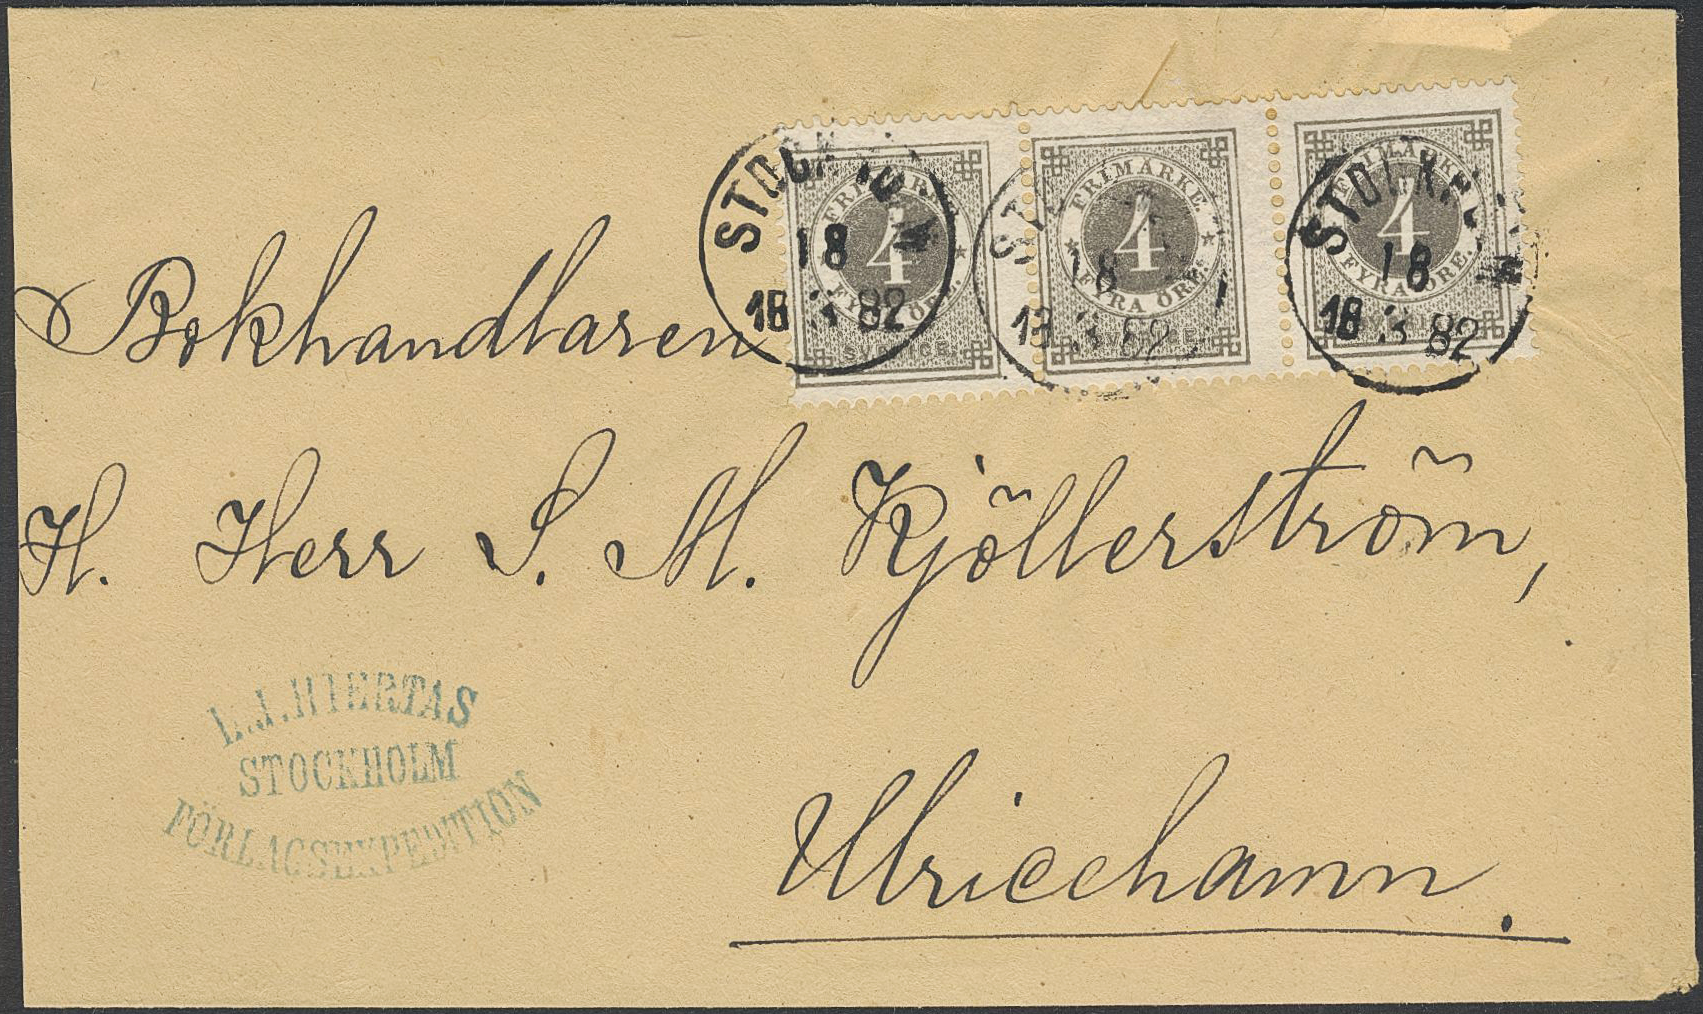 STOCKHOLM
18
18 3 82
FRIMÄRKE
4
FYRA ÖRE.
SVERIGE.
18
18 3 82
FRIMÄRKE
4
FYRA ÖRE.
SVERIGE.
STOCKHOLM
18
18 3 82
FRIMÄRKE
4
FYRA ÖRE.
SVERIGE.
Bokhandlaren
H. Herr S. M. Kjöllerström,
L.J.HIERTAS
STOCKHOLM
FÖRLAGSEXPEDITION
Ulricehamn.